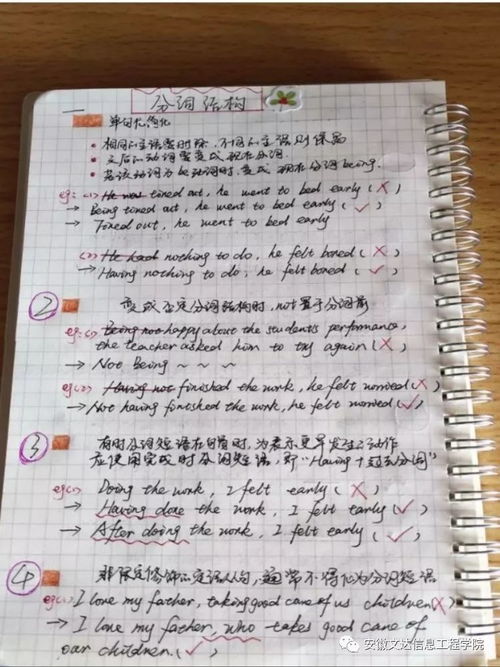 一 分词结构
单句化简化
• 相同的主语需删除,不同的主语则保留
• 之后的动词需变成现在分词.
• 若该动词为be动词时,变成现在分词being.
eg: (1) He was tired out, he went to bed early (×)
→ Being tired out, he went to bed early (✓)
→ Tired out, he went to bed early
(2) He had nothing to do, he felt bored (×)
→ Having nothing to do, he felt bored (✓)
② 变成否定分词结构时,not置于分词前
eg:(1) Being not happy about the student's performance,
the teacher asked him to try again (×)
→ Not Being ~ ~ ~
eg(2) Having not finished the work, he felt worried (×)
→ Not having finished the work, he felt worried (✓)
③ 有时分词短语在句首时,为表示更早发生的动作
应使用完成时分词短语,即"Having+过去分词"
eg(1) Doing the work, I felt early (×)
→ Having done the work, I felt early (✓)
→ After doing the work, I felt early (✓)
④ 非限定修饰的定语从句,通常不得化为分词短语
eg(1) I love my father, taking good care of us children (×)
→ I love my father, who takes good care of
our children. (✓)
安徽文达信息工程学院